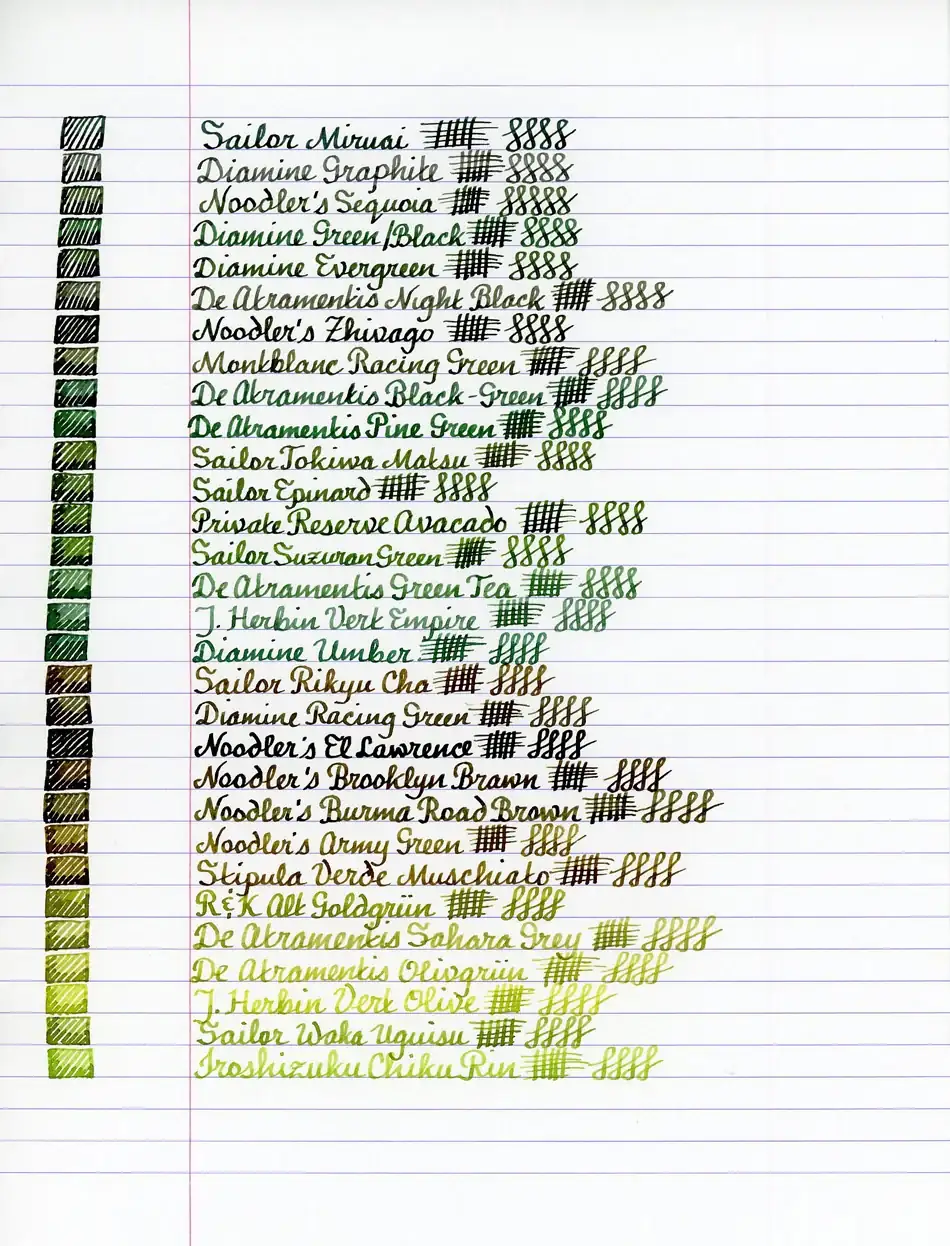 Sailor Miruai
Diamine Graphite
Noodler's Sequoia
Diamine Green/Black
Diamine Evergreen
De Atramentis Night Black
Noodler's Zhivago
Montblanc Racing Green
De Atramentis Black-Green
De Atramentis Pine Green
Sailor Tokiwa Matsu
Sailor Epinard
Private Reserve Avacado
Sailor Suzuran Green
De Atramentis Green Tea
J. Herbin Vert Empire
Diamine Umber
Sailor Rikyu Cha
Diamine Racing Green
Noodler's El Lawrence
Noodler's Brooklyn Brawn
Noodler's Burma Road Brown
Noodler's Army Green
Stipula Verde Muschiato
R&K Alt Goldgrün
De Atramentis Sahara Grey
De Atramentis Olivgrün
J. Herbin Vert Olive
Sailor Waka Uguisu
Iroshizuku Chiku Rin